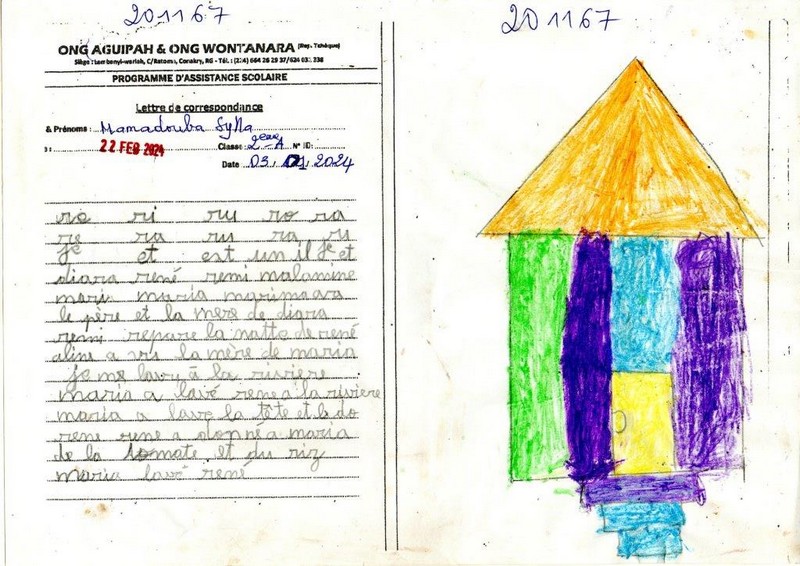 201167
201167
ONG AGUIPAH & ONG WONTANARA (Rep. Tchèque)
Siège : Lambanyi-wariah, C/Ratoma, Conakry, RG - Tél. : (224) 664 26 29 37/624 03 236
PROGRAMME D'ASSISTANCE SCOLAIRE
Lettre de correspondance
& Prénoms : Mamadouba Sylla
22 FEB 2024
Classe : 2ème A N° ID:
Date 03 / 01 / 2024
re ri ru ro ra
re ra ru ra ru
je et est un il je et
diara rené remi malamine
mari maria marimaara
le père et la mere de diara
remi repare la natte de rené
aline a vu la mère de maria
je me lave à la riviere
maria a lavé rene a la riviere
maria a lavé la tête et le do
rene rene a donné a maria
de la tomate et du riz
maria lavé rené